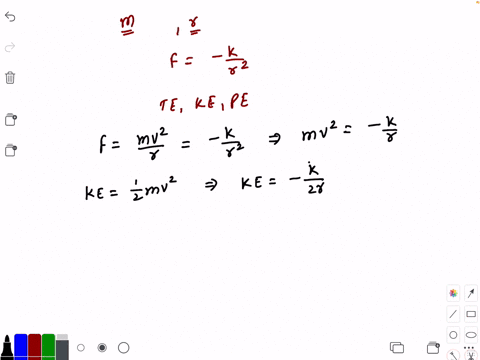 m , r
F = -k/r²
TE, KE, PE
F = mv²/r = -k/r² ⇒ mv² = -k/r
KE = 1/2 mv² ⇒ KE = -k/2r